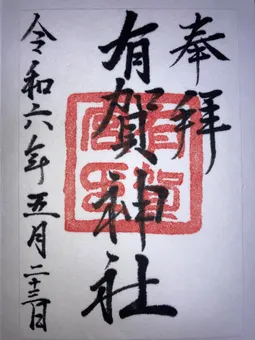 奉拝
有賀神社
令和六年五月二十三日